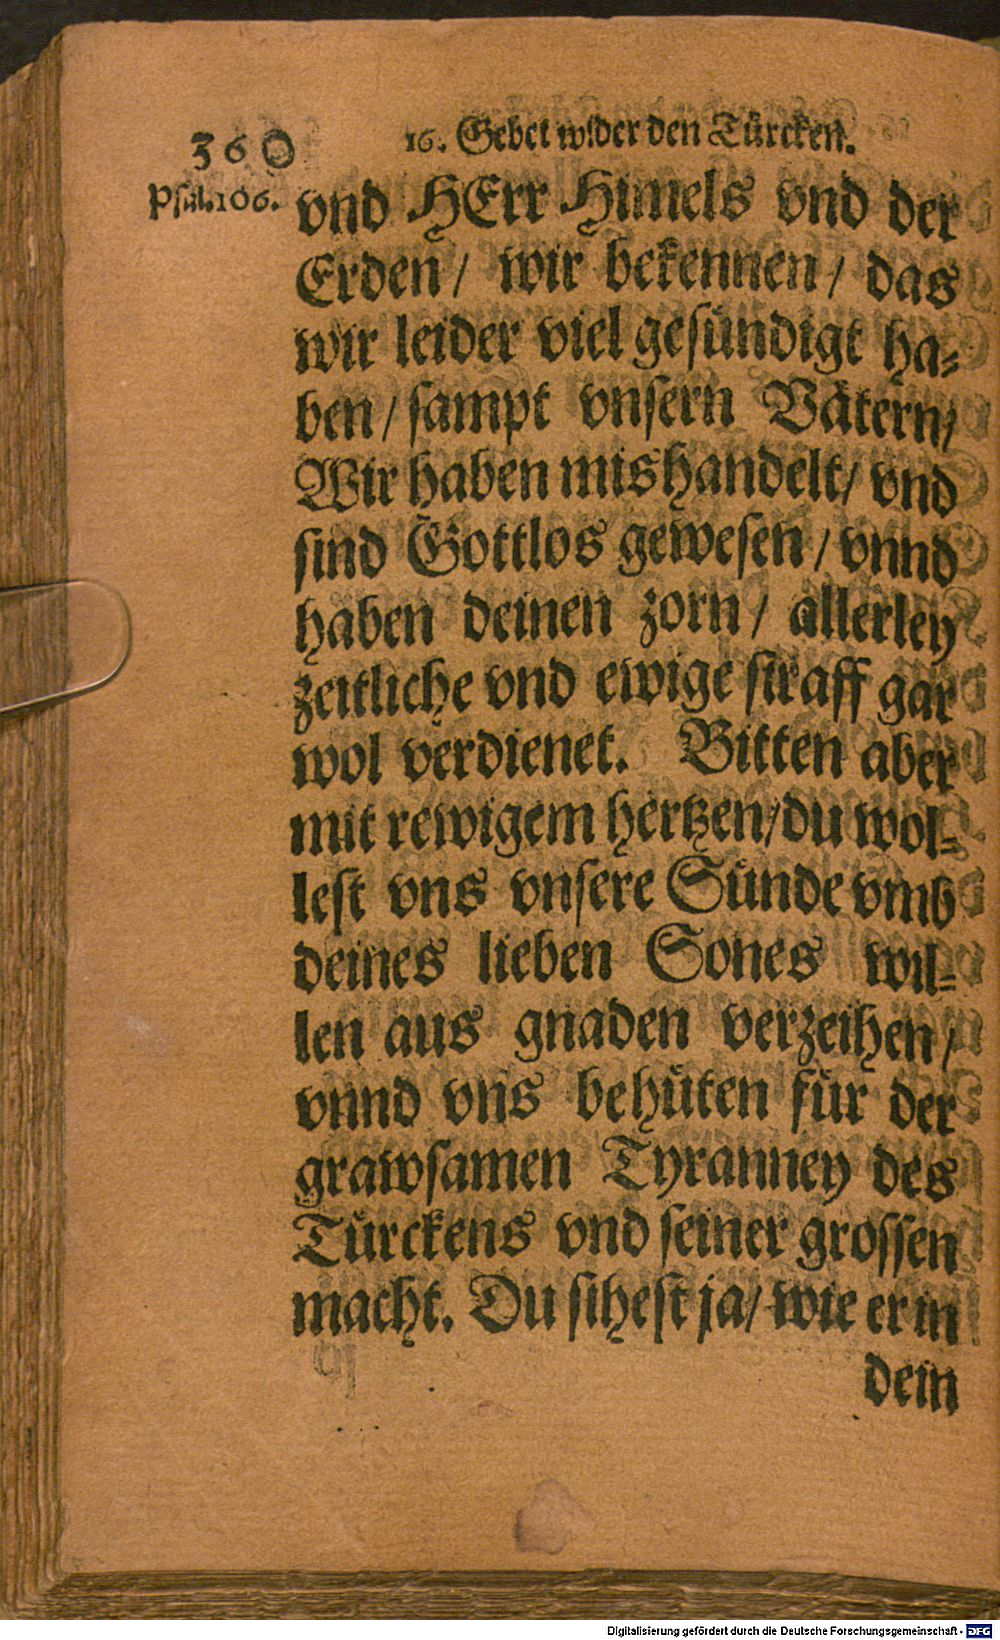 360
16. Gebet wider den Türcken.
Psal.106.
vnd HErr Himels vnd der
Erden / wir bekennen / das
wir leider viel gesündigt ha-
ben / sampt vnsern Vätern /
Wir haben mishandelt / vnd
sind Gottlos gewesen / vnnd
haben deinen zorn / allerley
zeitliche vnd ewige straff gar
wol verdienet. Bitten aber
mit rewigem hertzen / du wol-
lest vns vnsere Sünde vmb
deines lieben Sones wil-
len aus gnaden verzeihen /
vnnd vns behüten für der
grawsamen Tyranney des
Türckens vnd seiner grossen
macht. Du sihest ja / wie er in
dein
Digitalisierung gefördert durch die Deutsche Forschungsgemeinschaft - DFG